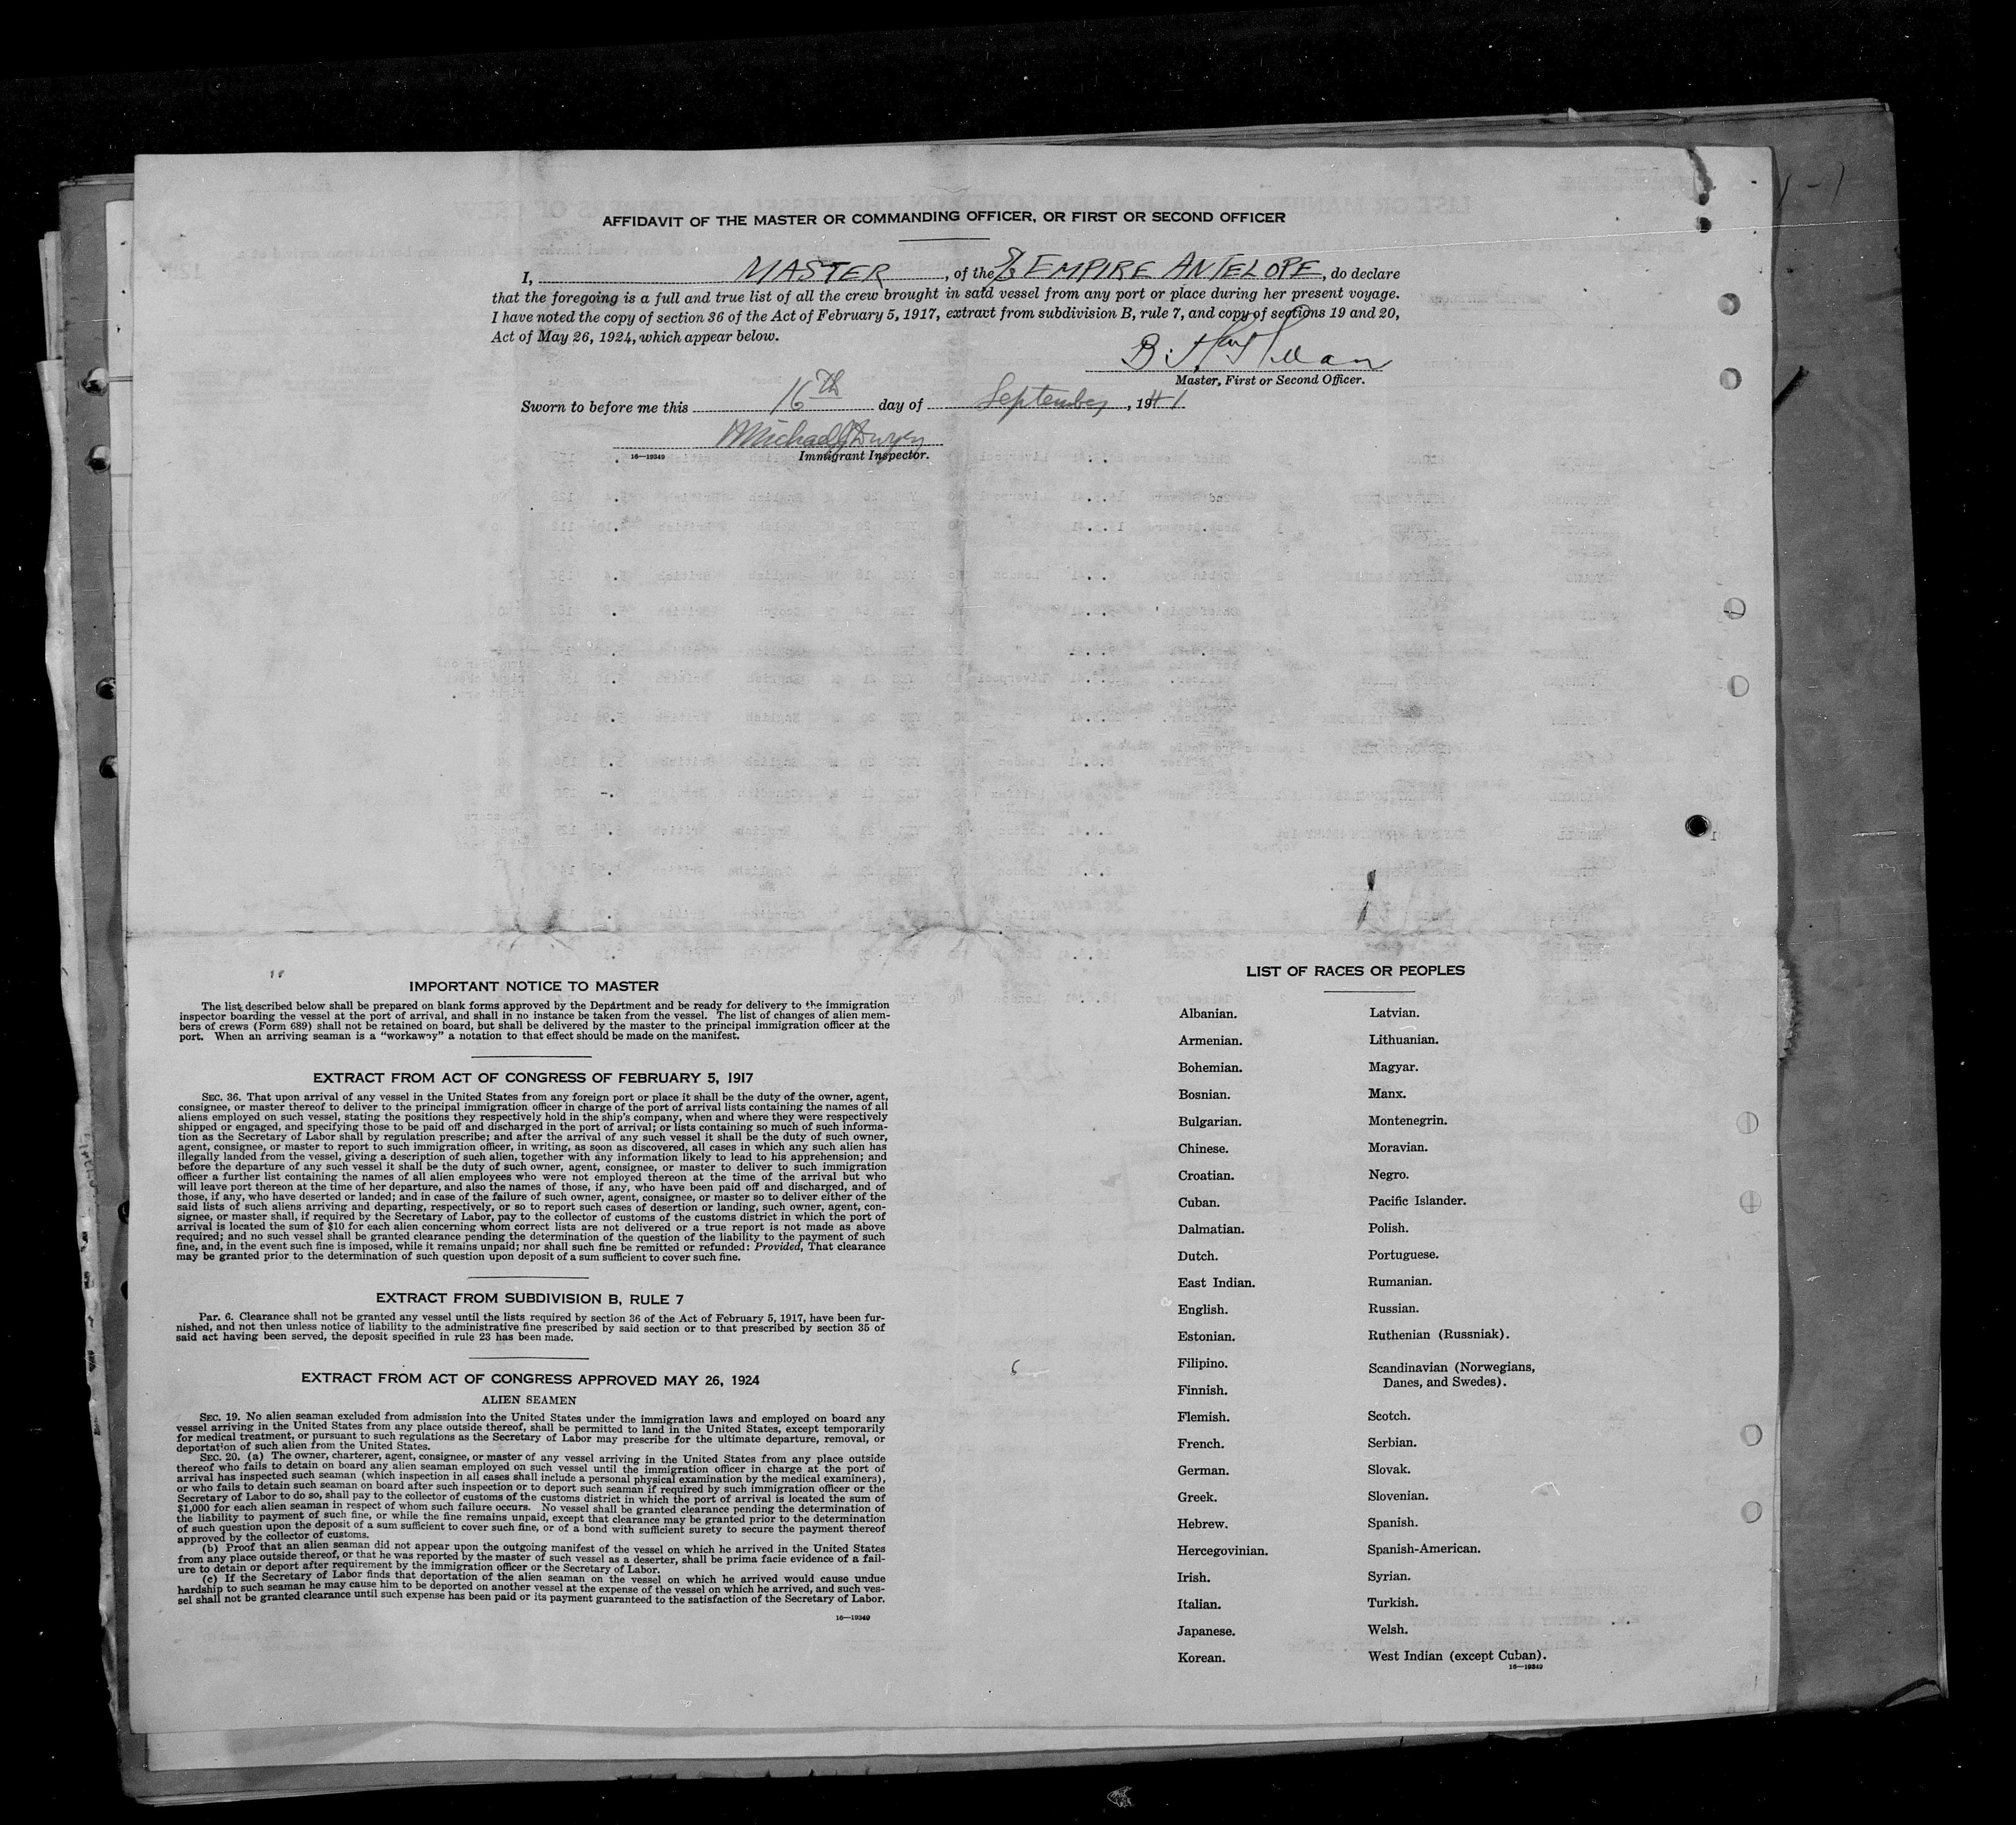 AFFIDAVIT OF THE MASTER OR COMMANDING OFFICER, OR FIRST OR SECOND OFFICER
I, MASTER, of the EMPIRE ANTELOPE, do declare
that the foregoing is a full and true list of all the crew brought in said vessel from any port or place during her present voyage.
I have noted the copy of section 36 of the Act of February 5, 1917, extract from subdivision B, rule 7, and copy of sections 19 and 20,
Act of May 26, 1924, which appear below.
Master, First or Second Officer.
Sworn to before me this 16th day of September, 1941
Michael J Dwyer
16—19349 Immigrant Inspector.
IMPORTANT NOTICE TO MASTER
The list described below shall be prepared on blank forms approved by the Department and be ready for delivery to the immigration
inspector boarding the vessel at the port of arrival, and shall in no instance be taken from the vessel. The list of changes of alien mem-
bers of crews (Form 689) shall not be retained on board, but shall be delivered by the master to the principal immigration officer at the
port. When an arriving seaman is a "workaway" a notation to that effect should be made on the manifest.
EXTRACT FROM ACT OF CONGRESS OF FEBRUARY 5, 1917
SEC. 36. That upon arrival of any vessel in the United States from any foreign port or place it shall be the duty of the owner, agent,
consignee, or master thereof to deliver to the principal immigration officer in charge of the port of arrival lists containing the names of all
aliens employed on such vessel, stating the positions they respectively hold in the ship's company, when and where they were respectively
shipped or engaged, and specifying those to be paid off and discharged in the port of arrival; or lists containing so much of such informa-
tion as the Secretary of Labor shall by regulation prescribe; and after the arrival of any such vessel it shall be the duty of such owner,
agent, consignee, or master to report to such immigration officer, in writing, as soon as discovered, all cases in which any such alien has
illegally landed from the vessel, giving a description of such alien, together with any information likely to lead to his apprehension; and
before the departure of any such vessel it shall be the duty of such owner, agent, consignee, or master to deliver to such immigration
officer a further list containing the names of all alien employees who were not employed thereon at the time of the arrival but who
will leave port thereon at the time of her departure, and also the names of those, if any, who have been paid off and discharged, and of
those, if any, who have deserted or landed; and in case of the failure of such owner, agent, consignee, or master so to deliver either of the
said lists of such aliens arriving and departing, respectively, or so to report such cases of desertion or landing, such owner, agent, con-
signee, or master shall, if required by the Secretary of Labor, pay to the collector of customs of the customs district in which the port of
arrival is located the sum of $10 for each alien concerning whom correct lists are not delivered or a true report is not made as above
required; and no such vessel shall be granted clearance pending the determination of the question of the liability to the payment of such
fine, and, in the event such fine is imposed, while it remains unpaid; nor shall such fine be remitted or refunded: Provided, That clearance
may be granted prior to the determination of such question upon deposit of a sum sufficient to cover such fine.
EXTRACT FROM SUBDIVISION B, RULE 7
Par. 6. Clearance shall not be granted any vessel until the lists required by section 36 of the Act of February 5, 1917, have been fur-
nished, and not then unless notice of liability to the administrative fine prescribed by said section or to that prescribed by section 35 of
said act having been served, the deposit specified in rule 23 has been made.
EXTRACT FROM ACT OF CONGRESS APPROVED MAY 26, 1924
ALIEN SEAMEN
SEC. 19. No alien seaman excluded from admission into the United States under the immigration laws and employed on board any
vessel arriving in the United States from any place outside thereof, shall be permitted to land in the United States, except temporarily
for medical treatment, or pursuant to such regulations as the Secretary of Labor may prescribe for the ultimate departure, removal, or
deportation of such alien from the United States.
SEC. 20. (a) The owner, charterer, agent, consignee, or master of any vessel arriving in the United States from any place outside
thereof who fails to detain on board any alien seaman employed on such vessel until the immigration officer in charge at the port of
arrival has inspected such seaman (which inspection in all cases shall include a personal physical examination by the medical examiners),
or who fails to detain such seaman on board after such inspection or to deport such seaman if required by such immigration officer or the
Secretary of Labor to do so, shall pay to the collector of customs of the customs district in which the port of arrival is located the sum of
$1,000 for each alien seaman in respect of whom such failure occurs. No vessel shall be granted clearance pending the determination of
the liability to payment of such fine, or while the fine remains unpaid, except that clearance may be granted prior to the determination
of such question upon the deposit of a sum sufficient to cover such fine, or of a bond with sufficient surety to secure the payment thereof
approved by the collector of customs.
(b) Proof that an alien seaman did not appear upon the outgoing manifest of the vessel on which he arrived in the United States
from any place outside thereof, or that he was reported by the master of such vessel as a deserter, shall be prima facie evidence of a fail-
ure to detain or deport after requirement by the immigration officer or the Secretary of Labor.
(c) If the Secretary of Labor finds that deportation of the alien seaman on the vessel on which he arrived would cause undue
hardship to such seaman he may cause him to be deported on another vessel at the expense of the vessel on which he arrived, and such ves-
sel shall not be granted clearance until such expense has been paid or its payment guaranteed to the satisfaction of the Secretary of Labor.
16—19349
LIST OF RACES OR PEOPLES
Albanian.
Armenian.
Bohemian.
Bosnian.
Bulgarian.
Chinese.
Croatian.
Cuban.
Dalmatian.
Dutch.
East Indian.
English.
Estonian.
Filipino.
Finnish.
Flemish.
French.
German.
Greek.
Hebrew.
Hercegovinian.
Irish.
Italian.
Japanese.
Korean.
Latvian.
Lithuanian.
Magyar.
Manx.
Montenegrin.
Moravian.
Negro.
Pacific Islander.
Polish.
Portuguese.
Rumanian.
Russian.
Ruthenian (Russniak).
Scandinavian (Norwegians,
Danes, and Swedes).
Scotch.
Serbian.
Slovak.
Slovenian.
Spanish.
Spanish-American.
Syrian.
Turkish.
Welsh.
West Indian (except Cuban).
16—19349